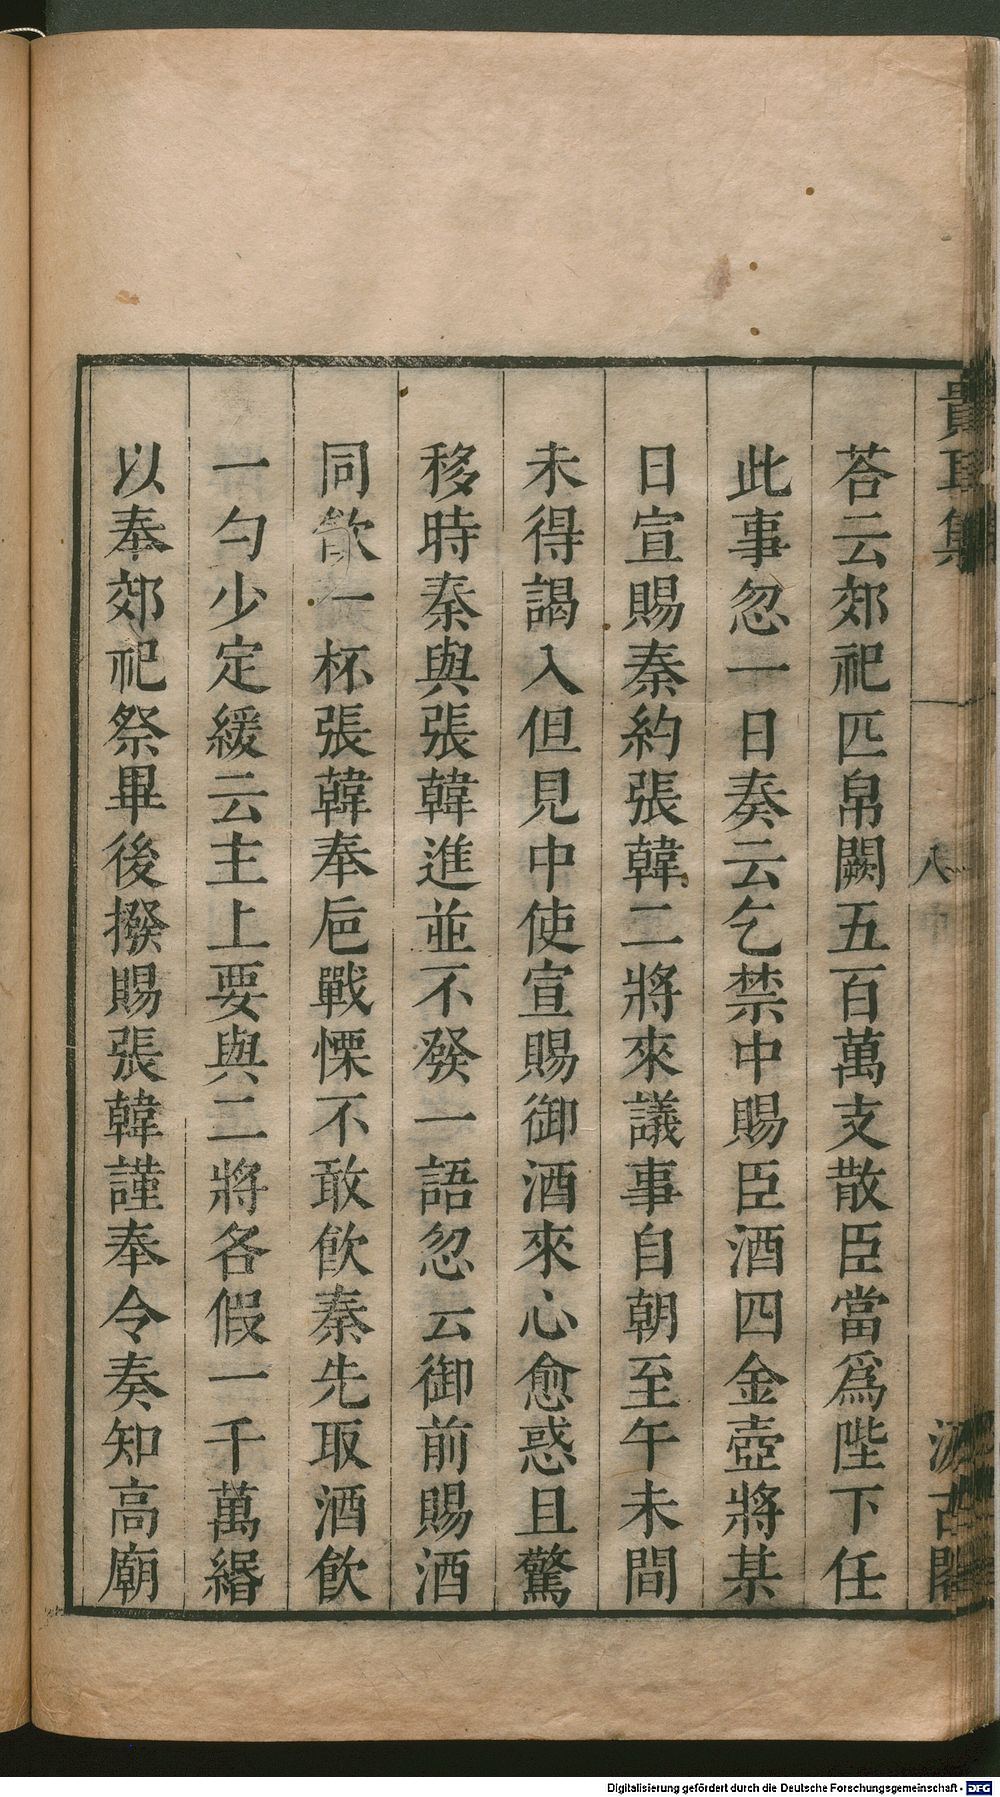 貴耳集
八
汲古閣
荅云郊祀匹帛闕五百萬支散臣當爲陛下任
此事忽一日奏云乞禁中賜臣酒四金壺將某
日宣賜秦約張韓二將來議事自朝至午未間
未得謁入但見中使宣賜御酒來心愈惑且驚
移時秦與張韓進並不發一語忽云御前賜酒
同飲一杯張韓奉巵戰慄不敢飲秦先取酒飲
一勺少定緩云主上要與二將各假一千萬緡
以奉郊祀祭畢後撥賜張韓謹奉令奏知高廟
Digitalisierung gefördert durch die Deutsche Forschungsgemeinschaft - DFG